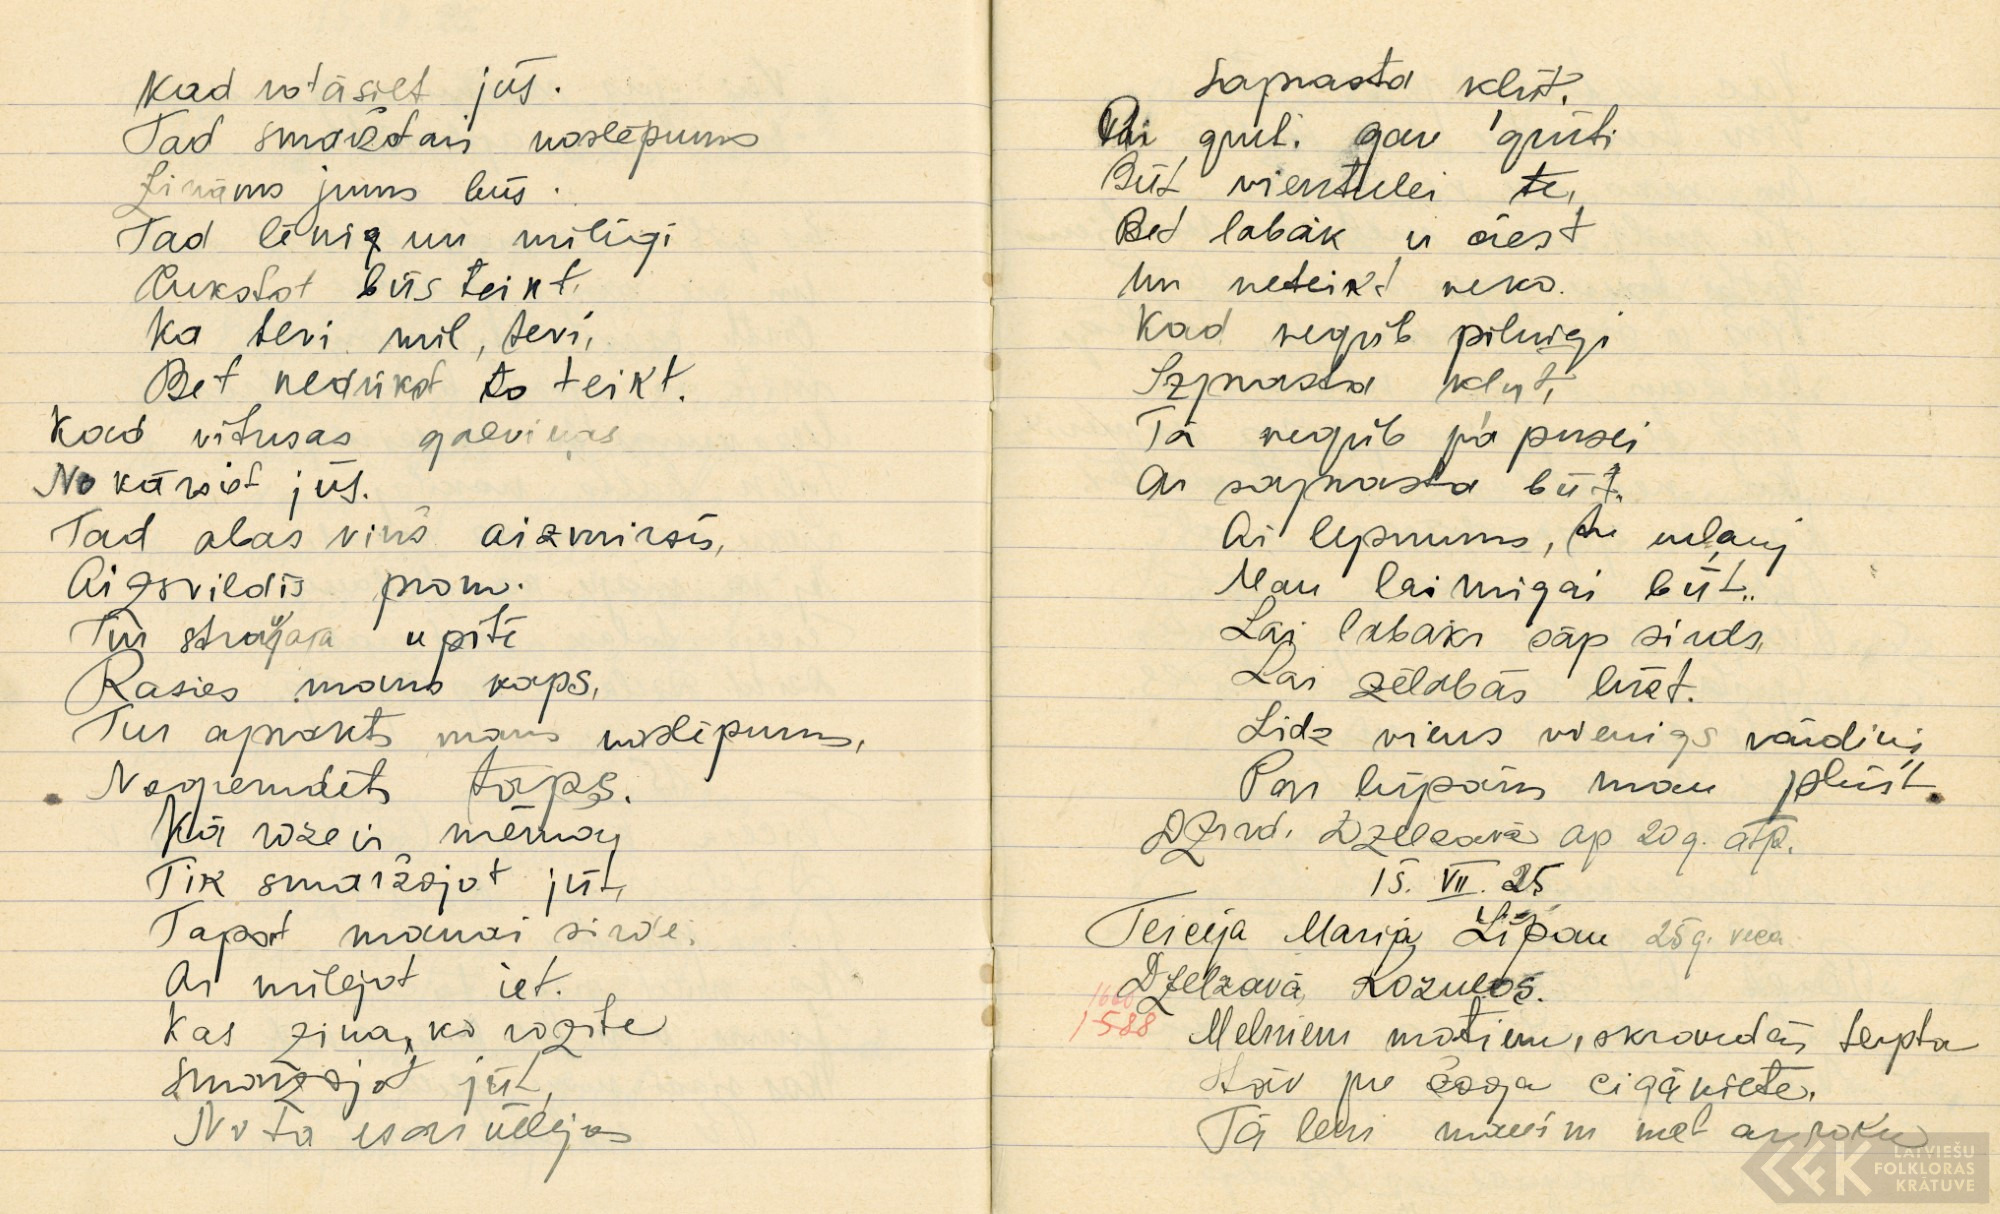 Kad rotāsiet jūs.
Tad smaržais noslēpums
Zināms jums būs.
Tad lēnig un mīlīgi
Čukstot būs teikt,
Ka tevi mīl, tevi,
Bet nedrīkst to teikt.
Kad vītušas galviņas
Nokārsiet jūs.
Tad abas viņš aizmirsīs,
Aizsvildīs prom.
Tur straujaja upītē
Rasies mans kaps,
Tur aprakts mans noslēpums,
Neapendēts taps.
Kā rozei mēmay
Tik smaržojot jūt,
Tapat manai sirdei,
Ar mīlejot iet.
Kas zina, ko rozīte
Smaržojot jūt,
No tā es arī vēlejos
Saprasta kļūt.
Vai grūt. gan grūti
Būt vientulei te,
Bet labāk ir ciest
Un neteikt neko.
Kad negrib pilnīgi
Szprasta kļut,
Tā negrib pa pusei
Ar saprasta būt.
Ai lepnums, tu neļauj
Man laimigai būt..
Lai labāk sāp sirds,
Lai žēlabās lūzt.
Lidz viens vienigs vārdiņš
Par lūpām man plūst.
Dzird. Dzelzavā ap 20 g. atp.
15. VII. 25
Teiceja Marija Lipau 25 g. veca
Dzelzavā, Kozulos.
1588
Melniem matiem, skrandās terpta
Stāv pie žoga cigāniete.
Tā ler man met ar roku
LATVIEŠU
FOLKLORAS
KRĀTUVE